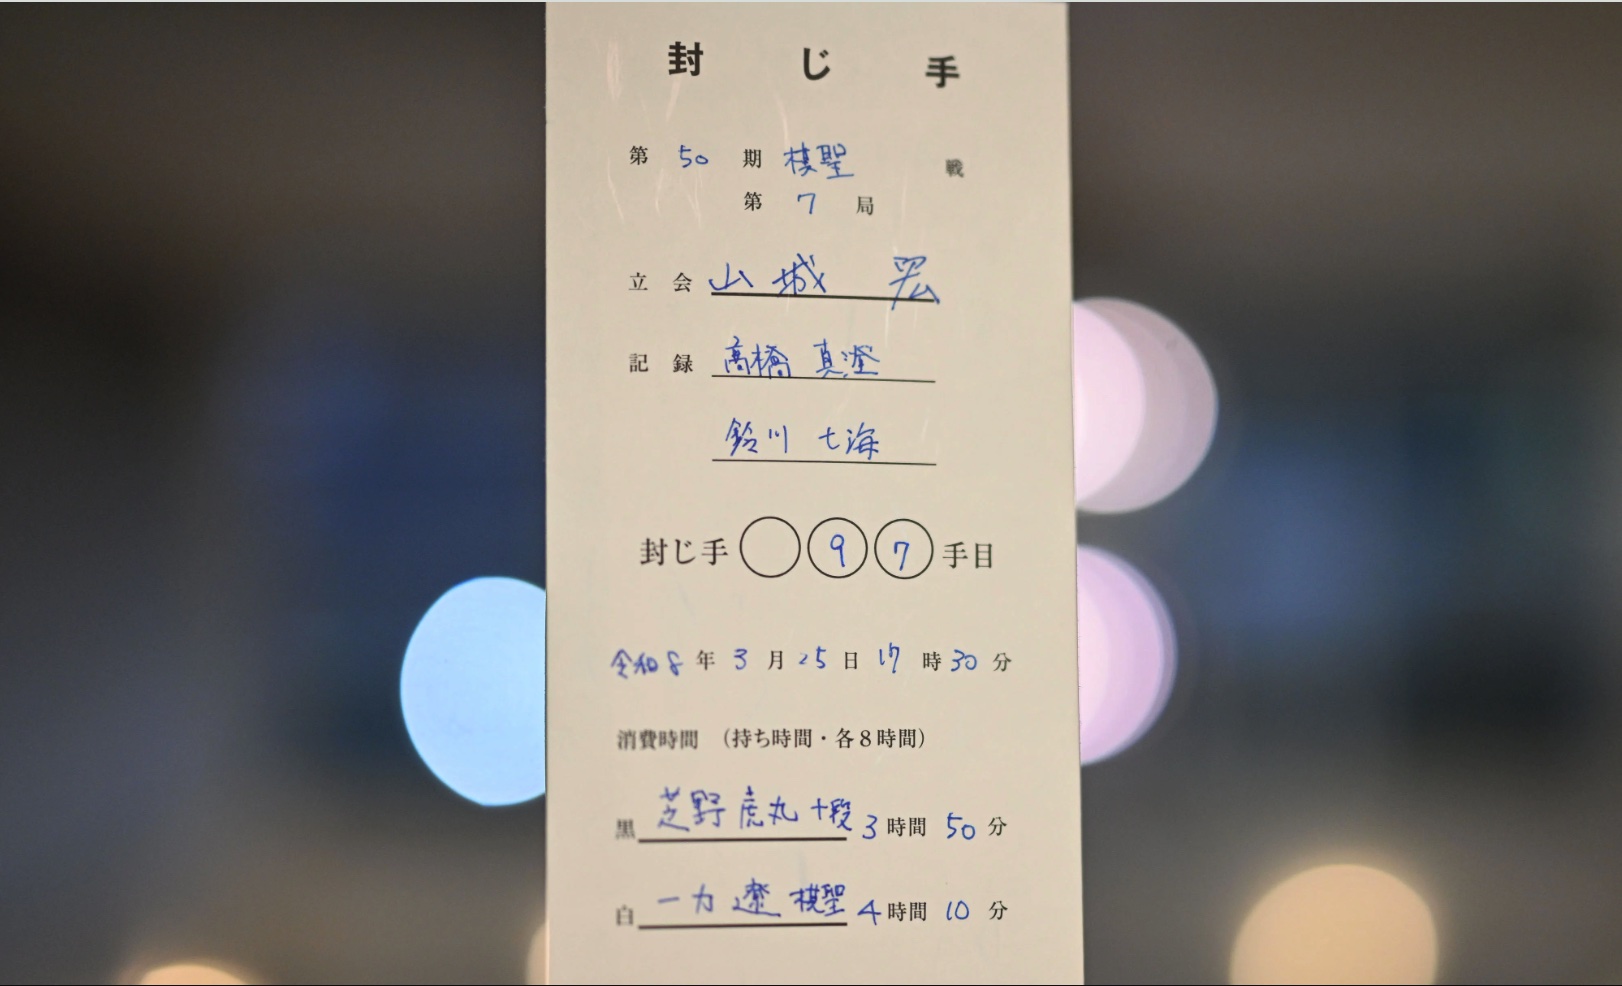 封じ手
第 50 期 棋聖 戦
第 7 局
立会 山城 宏
記録 高橋 真澄
鈴川 七海
封じ手 9 7 手目
令和8年 3月 25日 17時 30分
消費時間 (持ち時間・各8時間)
黒 芝野 虎丸 十段 3時間 50分
白 一力 遼 棋聖 4時間 10分